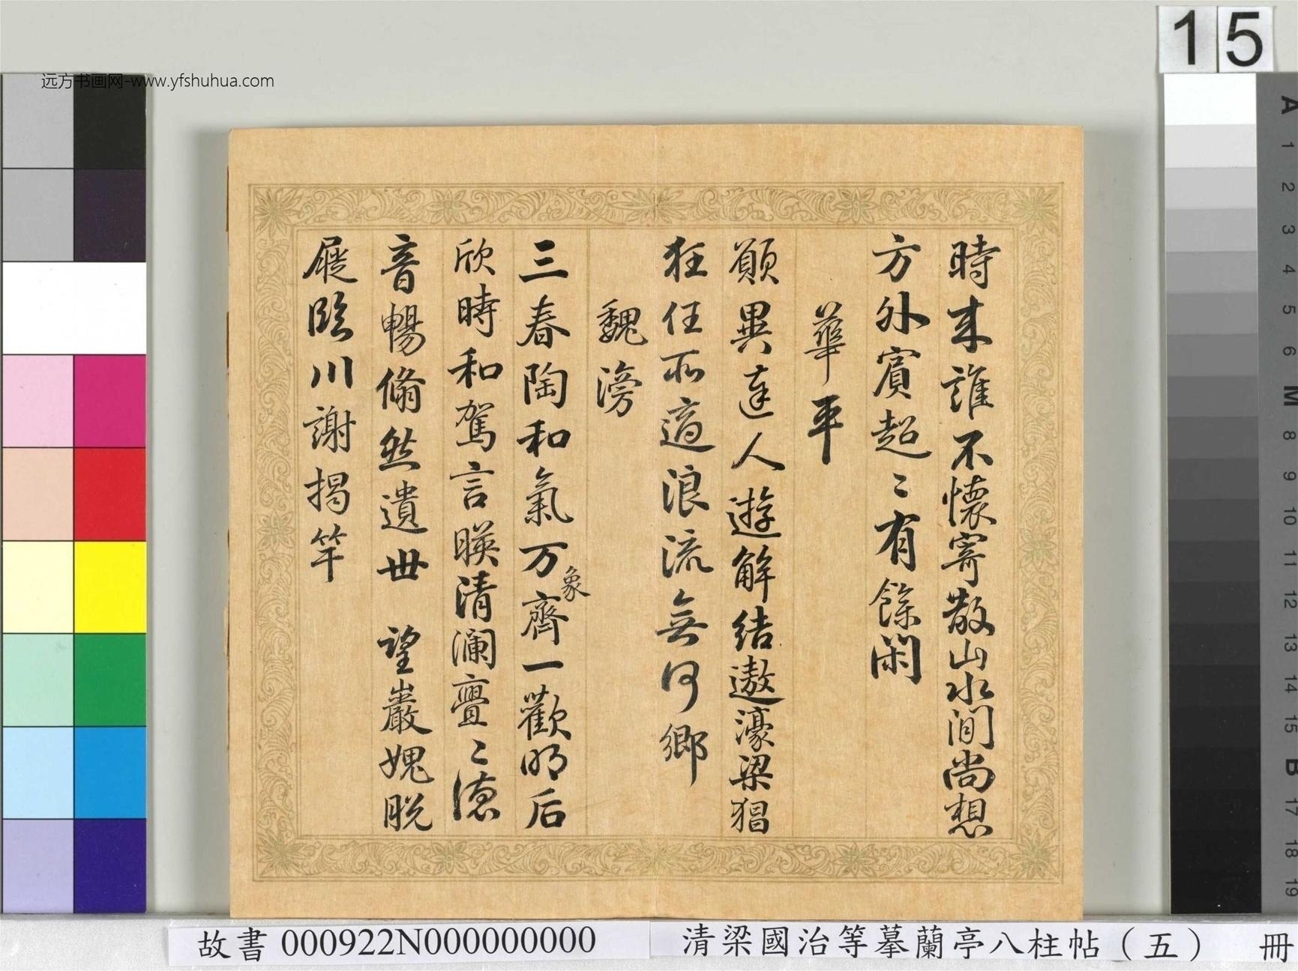 远方书画网-www.yfshuhua.com
15
時来誰不懷寄散山水閒尚想
方外賓超〻有餘閑
華平
願異達人遊解結遨濠梁猖
狂任所適浪流無何鄉
魏滂
三春陶和氣万象齊一歡明后
欣時和駕言暎清瀾亹〻德
音暢脩然遺世 望巖媿脱
屣臨川謝揭竿
A
1
2
3
4
5
6
M
8
9
10
11
12
13
14
15
B
17
18
19
故書 000922N000000000
清梁國治等摹蘭亭八柱帖（五） 冊